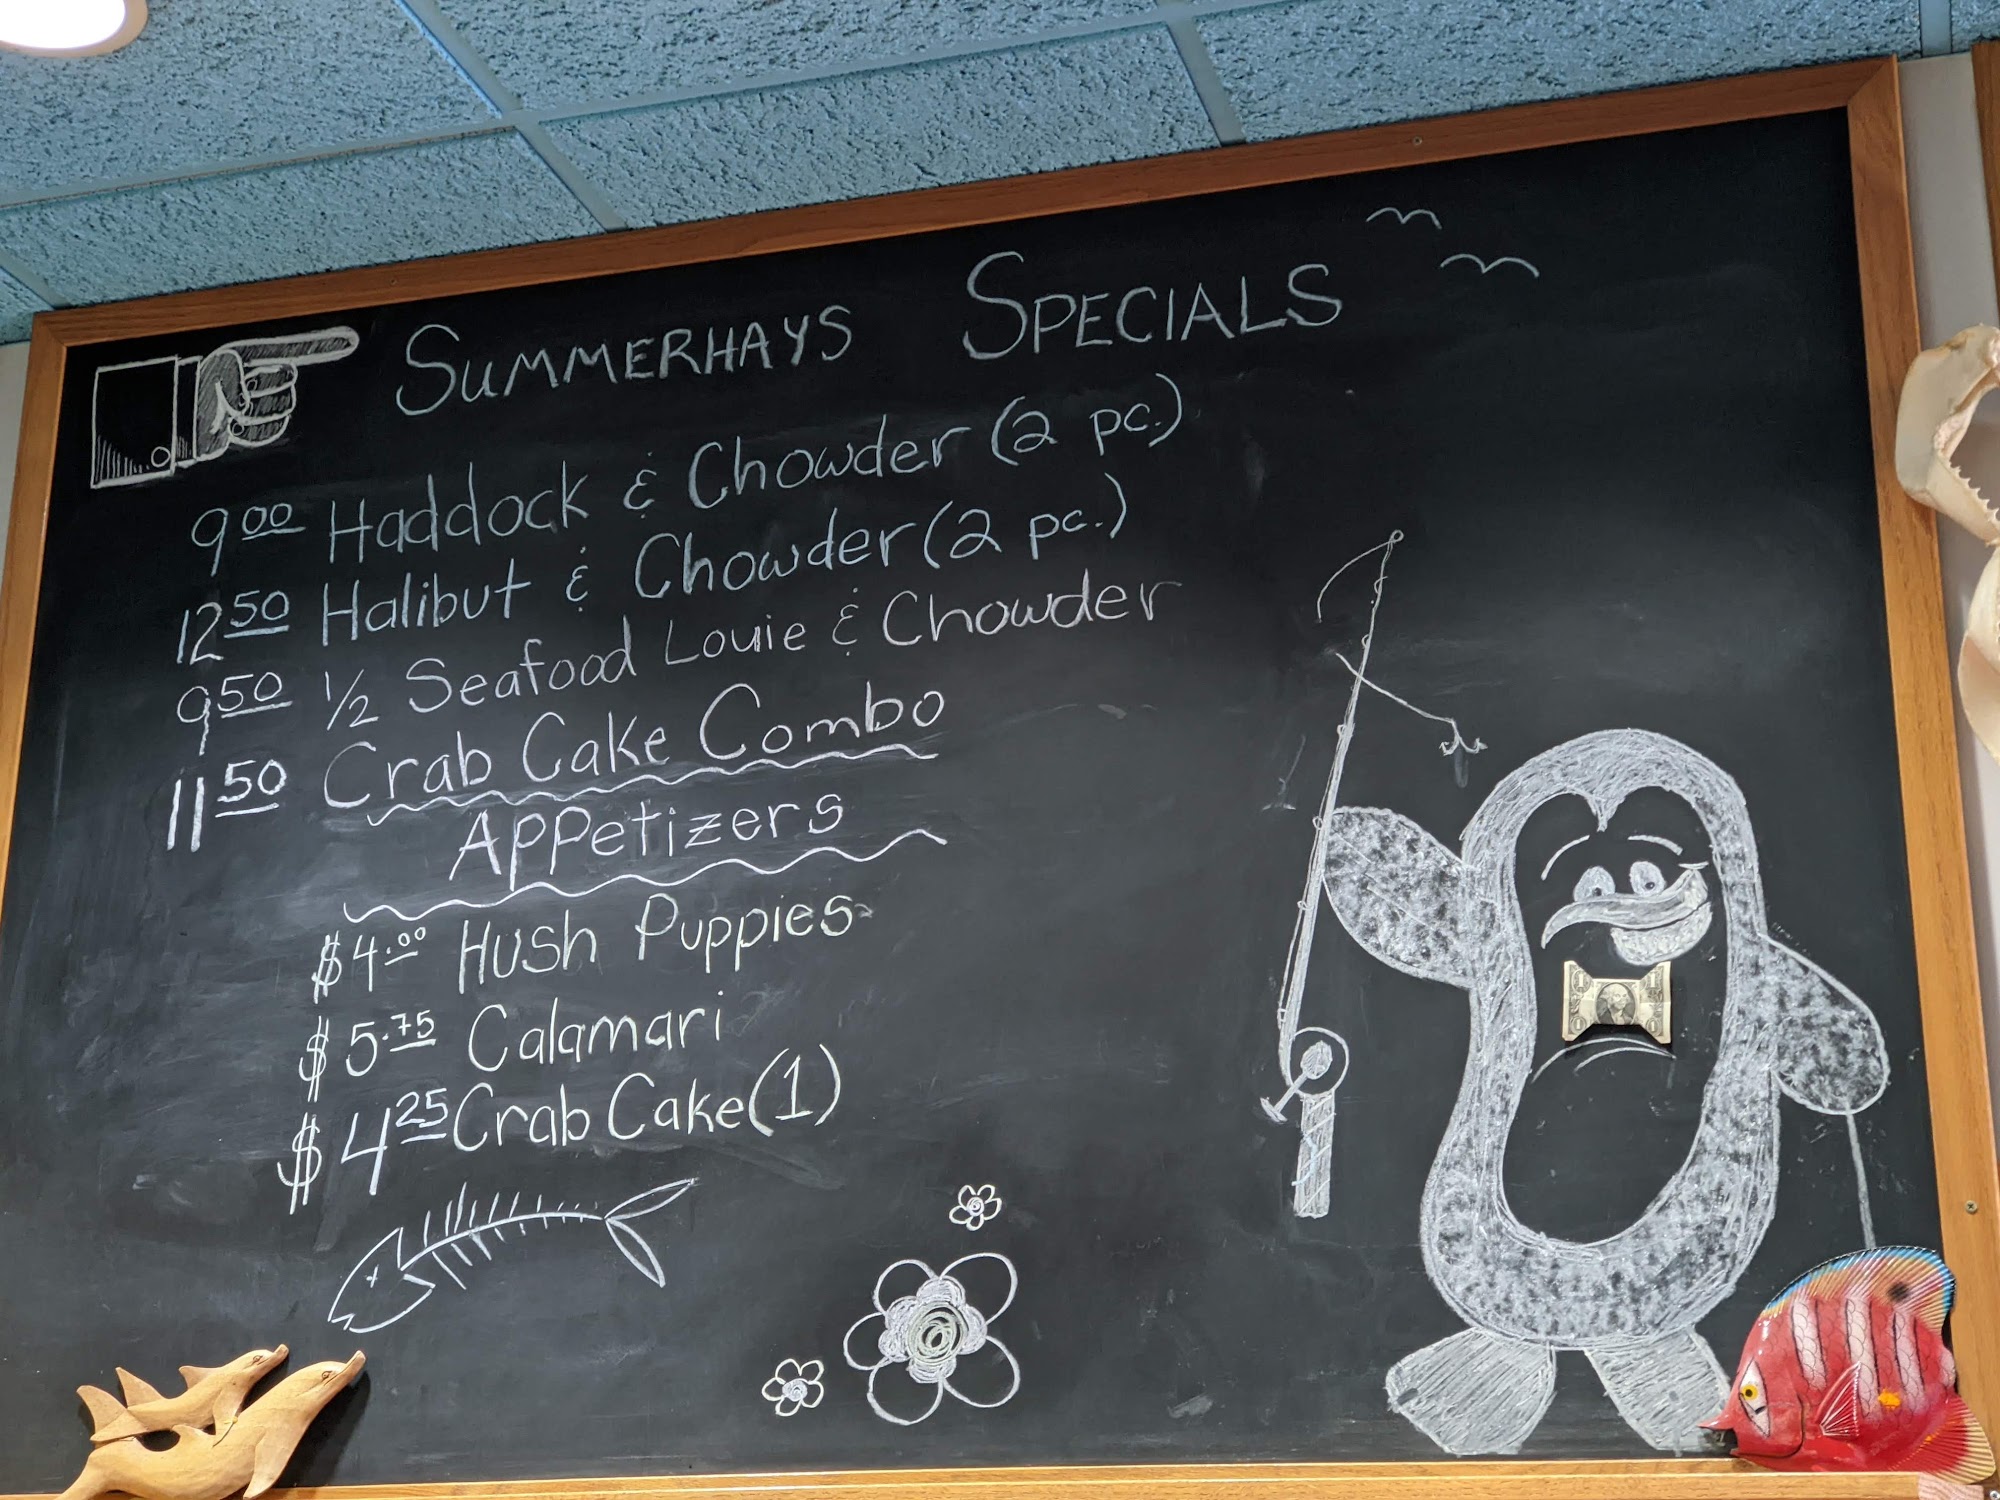 SUMMERHAYS SPECIALS
9 00 Haddock & Chowder (2 pc.)
12 50 Halibut & Chowder (2 pc.)
9 50 1/2 Seafood Louie & Chowder
11 50 Crab Cake Combo
Appetizers
$4.00 Hush Puppies
$5.75 Calamari
$4 25 Crab Cake (1)